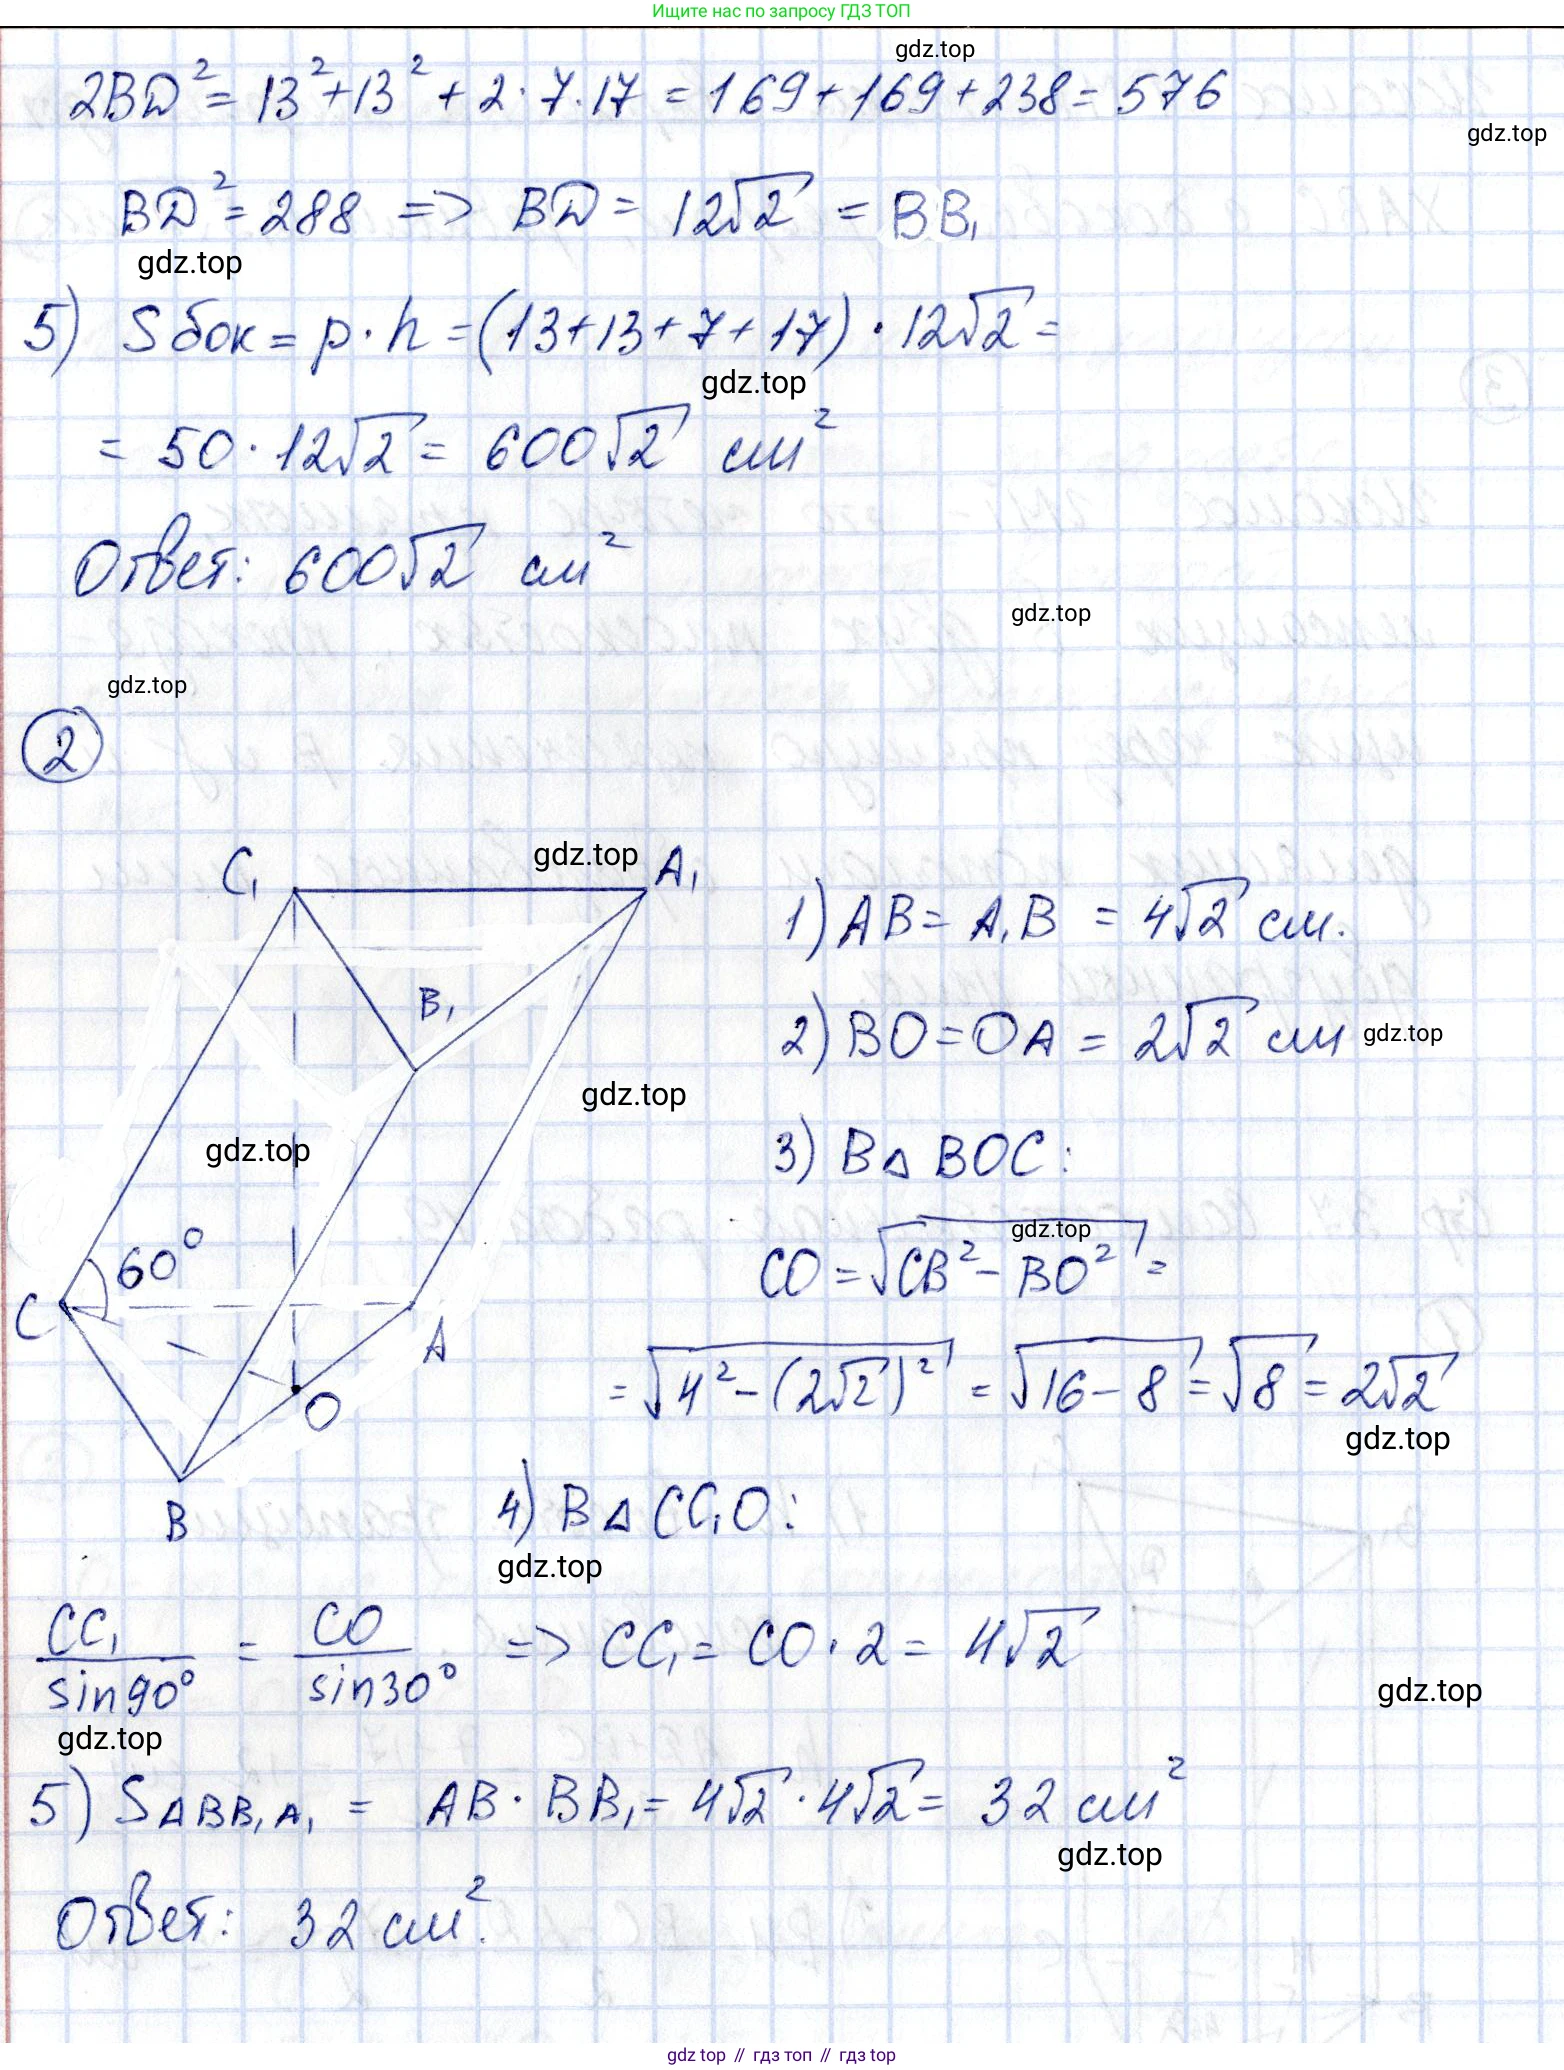 Ищите нас по запросу ГДЗ ТОП
gdz.top
2BD² = 13² + 13² + 2 · 7 · 17 = 169 + 169 + 238 = 576
gdz.top
BD² = 288 => BD = 12√2 = BB₁
gdz.top
5) Sбок = p · h = (13 + 13 + 7 + 17) · 12√2 =
gdz.top
= 50 · 12√2 = 600√2 см²
Ответ: 600√2 см²
gdz.top
gdz.top
2
C₁
gdz.top
A₁
1) AB = A₁B = 4√2 см.
B₁
2) BO = OA = 2√2 см
gdz.top
gdz.top
gdz.top
3) В △ BOC:
gdz.top
60°
CO = √(CB² - BO²) =
C
A
= √(4² - (2√2)²) = √(16 - 8) = √8 = 2√2
O
gdz.top
B
4) В △ CC₁O:
gdz.top
CC₁/sin90° = CO/sin30° => CC₁ = CO · 2 = 4√2
gdz.top
gdz.top
5) SABB₁A₁ = AB · BB₁ = 4√2 · 4√2 = 32 см²
gdz.top
Ответ: 32 см².
gdz.top // гдз топ // гдз.top